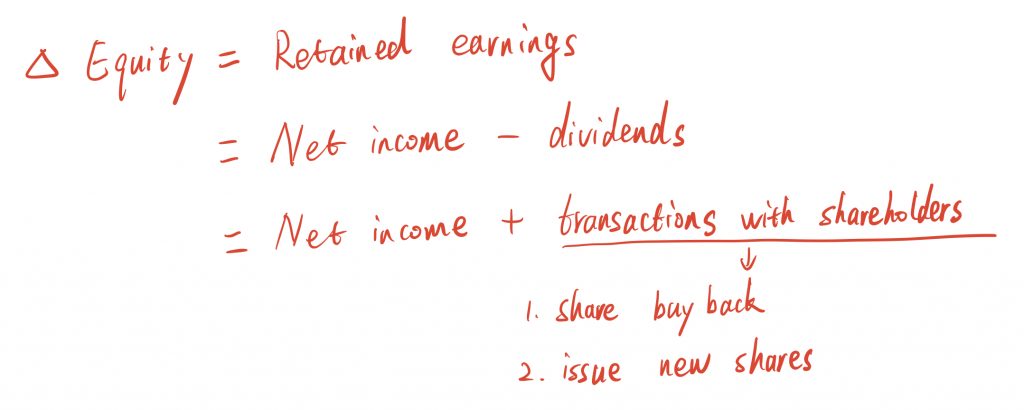 Δ Equity = Retained earnings
= Net income - dividends
= Net income + transactions with shareholders
↓
1. share buy back
2. issue new shares